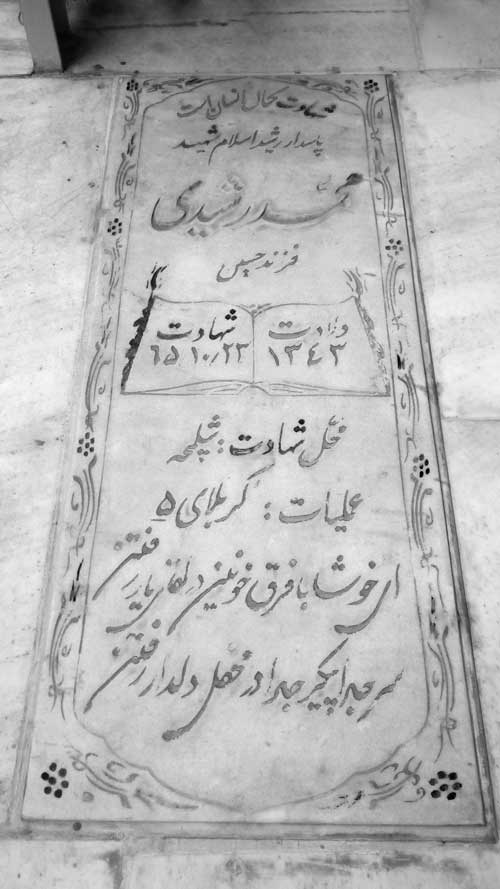 شهادت کمال انسان است
پاسدار رشید اسلام شهید
محمد رشیدی
فرزند حسین
ولادت
۱۳۴۳
شهادت
۶۵/۱۰/۲۳
محل شهادت: شلمچه
عملیات: کربلای ۵
ای خوشا با فرق خونین در لقای یار رفتن
سر جدا پیکر جدا در محفل دلدار رفتن